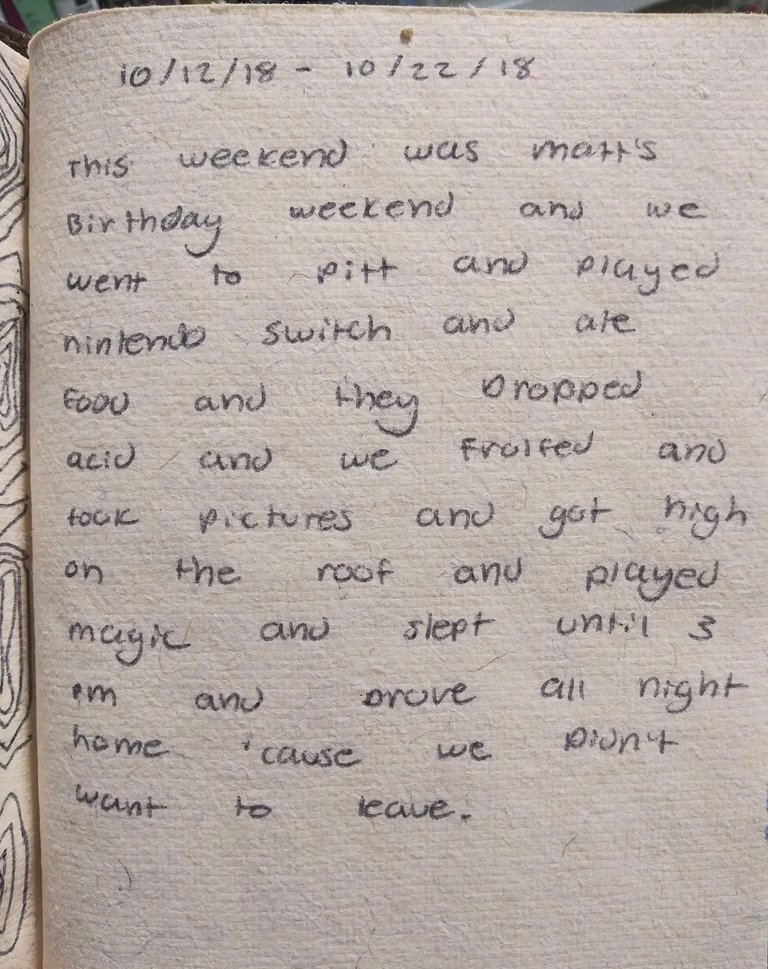 10/12/18 - 10/22/18
This weekend was matt's
Birthday weekend and we
went to pitt and played
nintendo switch and ate
Food and they Dropped
acid and we Frolfed and
took pictures and got high
on the roof and played
magic and slept until 3
Pm and Drove all night
home 'cause we Didn't
want to leave.